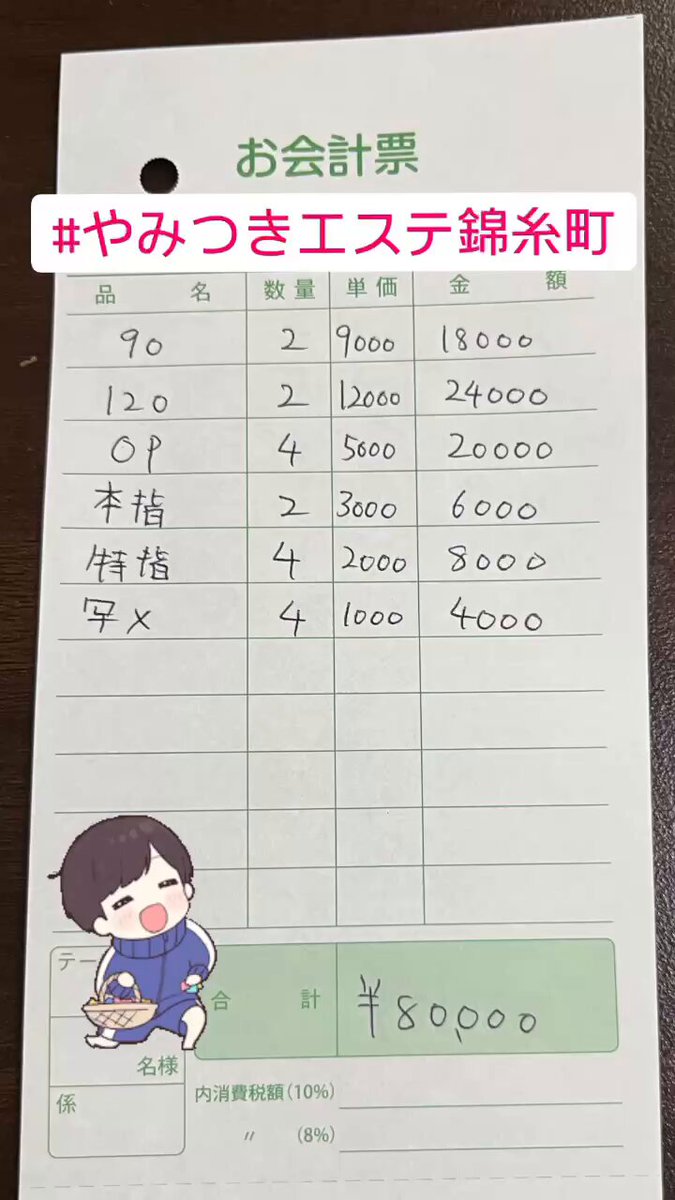 お会計票
#やみつきエステ錦糸町
品名 数量 単価 金額
90 2 9000 18000
120 2 12000 24000
OP 4 5000 20000
本指 2 3000 6000
特指 4 2000 8000
写メ 4 1000 4000
テー
合計 ¥80,000
名様
係
内消費税額(10%)
〃 (8%)